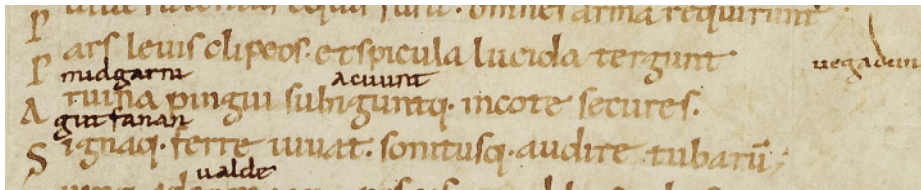 omnes arma requirunt;
Pars leuis clipeos. et spicula lucida tergunt uegadun
midgarni acuunt
Aruina pingui subiguntq. incote secures.
gut fanan
Signaq. ferre iuuat. sonitusq. audire tubarū;
ualde